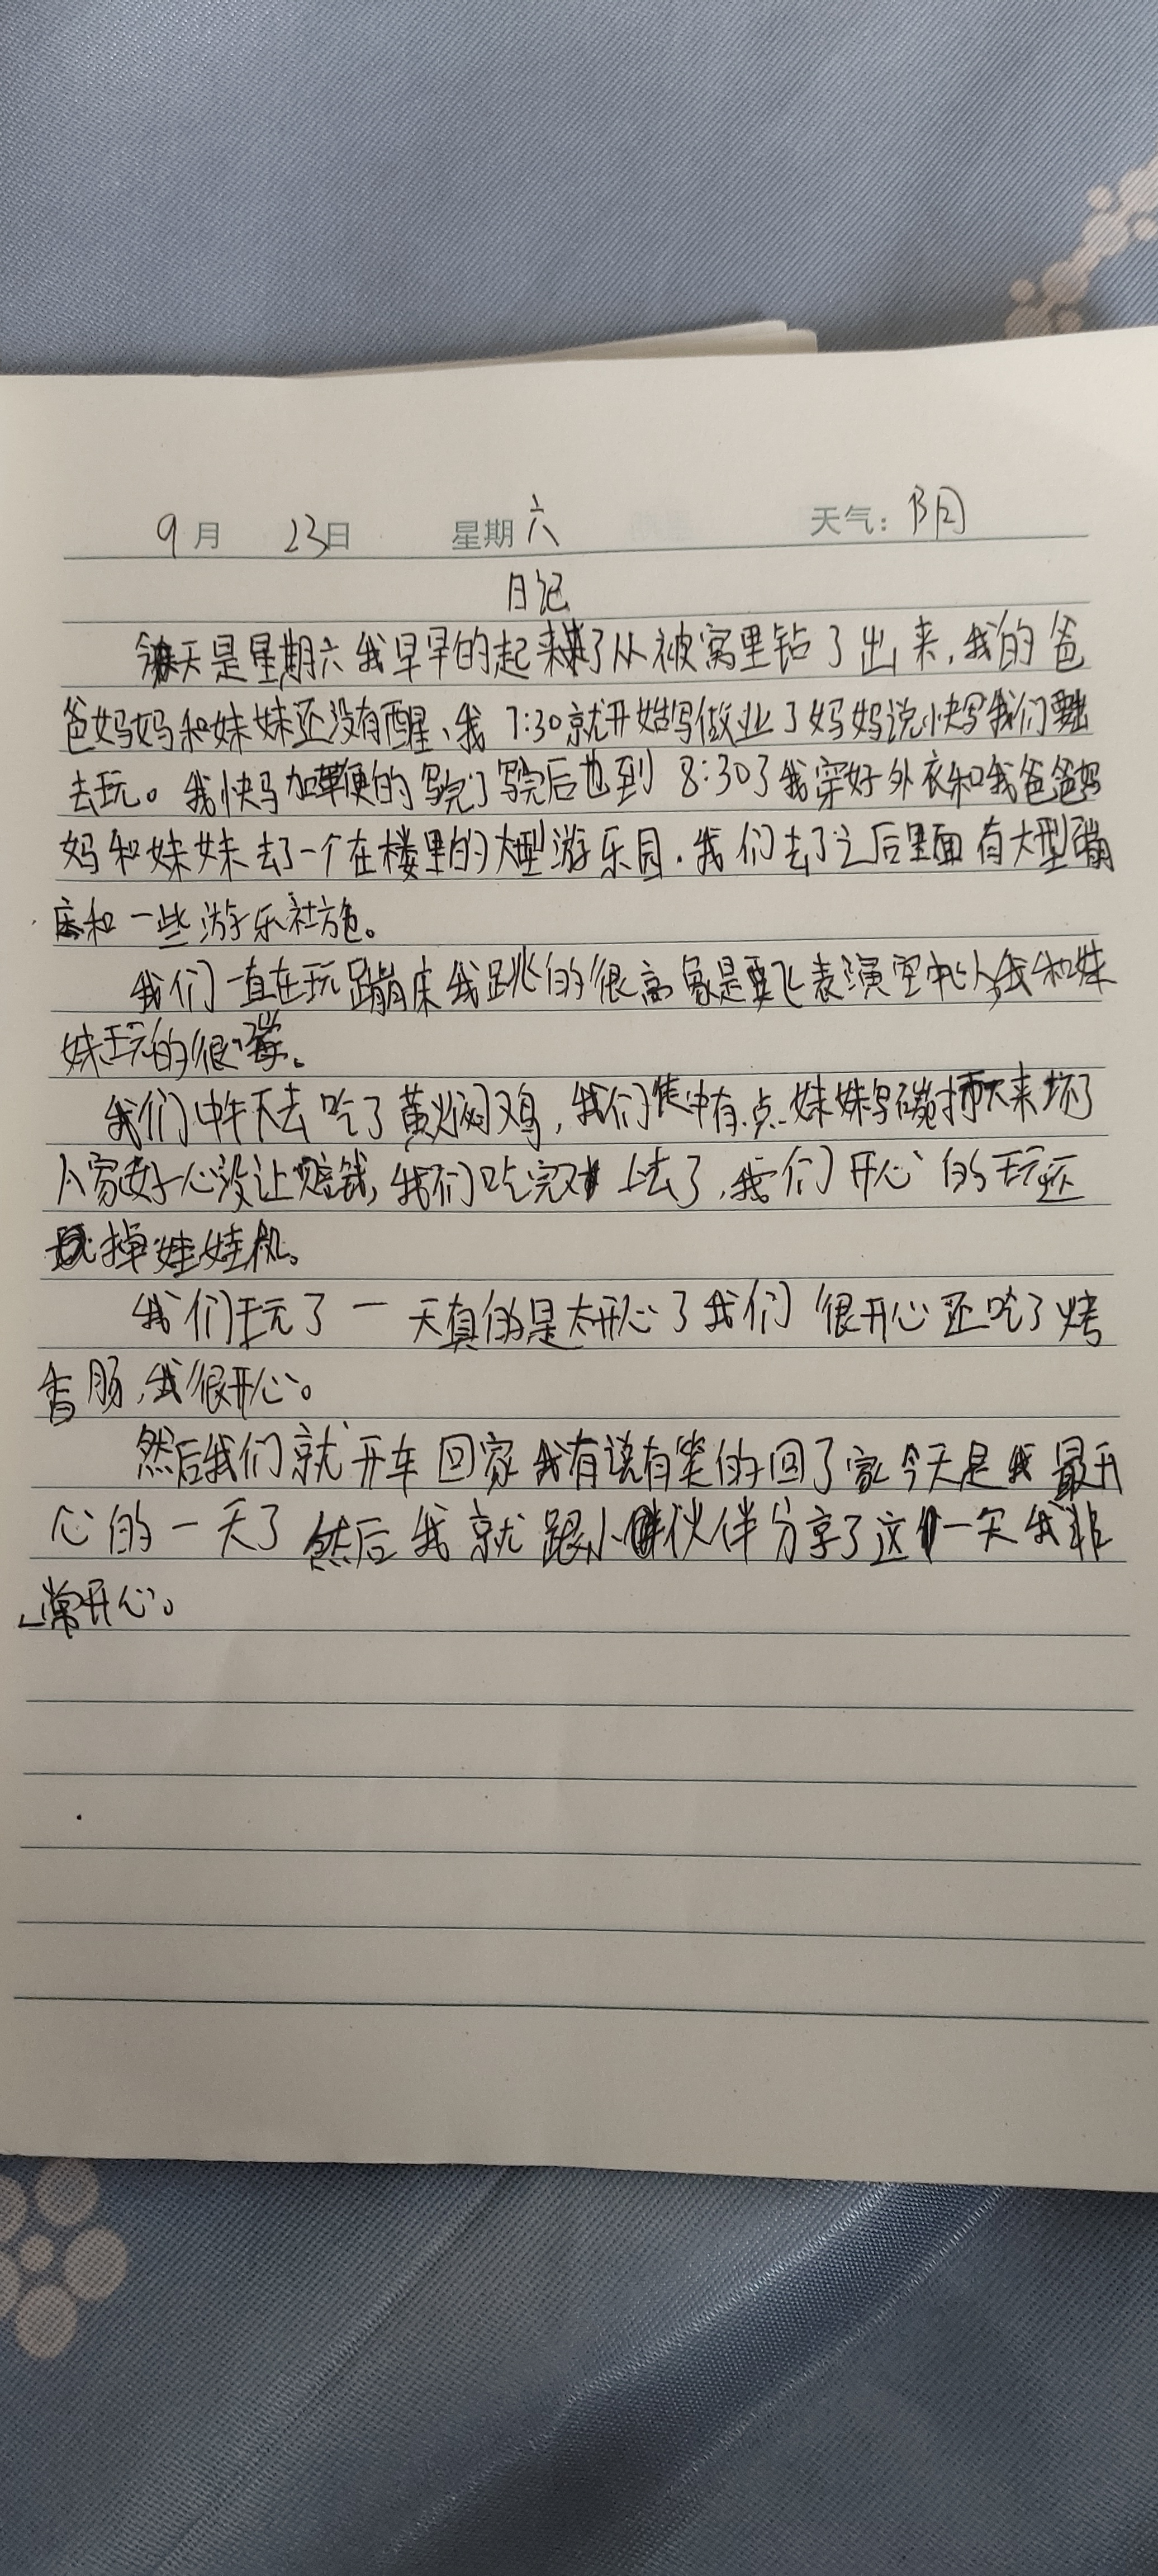 9月 23日 星期六 天气：阴
日记
今天是星期六我早早的起来了从被窝里钻了出来，我的爸
爸妈妈和妹妹还没有醒、我7:30就开始写做业了妈妈说快写我们出
去玩。我快马加鞭的写完了写完后也到8:30了我穿好外衣和我爸爸妈
妈和妹妹去了一个在楼里的大型游乐园．我们去了之后里面有大型蹦
床和一些游乐社施。
我们一直在玩蹦床我跳的很高象是要飞表演空中人我和妹
妹玩的很嗨。
我们中午下去吃了黄焖鸡，我们中有点妹妹碗下来坏了
人家好心没让赔钱，我们吃完又上去了，我们开心的玩还
玩掉娃娃机。
我们玩了一天真的是太开心了我们很开心还吃了烤
香肠，我很开心。
然后我们就开车回家我有说有笑的回了家今天是我最开
心的一天了然后我就跟小伙伴分享了这一天我非
常开心。